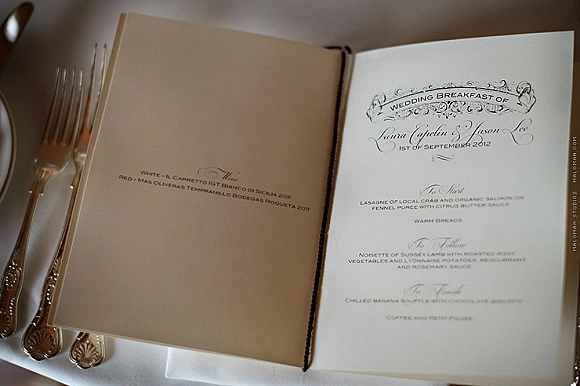 Wine
White - Il Carretto IGT Bianco di Sicilia 2011
Red - Mas Oliveras Tempranillo Bodegas Roqueta 2011
Wedding Breakfast of
Laura Capelin & Jason Lee
1st of September 2012
To Start
Lasagne of local crab and organic salmon on
fennel puree with citrus butter sauce
Warm Breads
To Follow
Noisette of Sussex lamb with roasted root
vegetables and Lyonnaise potatoes, redcurrant
and rosemary sauce
To Finish
Chilled banana souffle with chocolate biscotti
Coffee and Petit Fours
MALOMAN STUDIOS - MALOMAN.COM